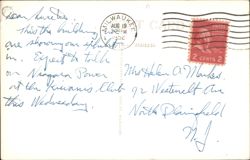 Dear Aunt
This is the building
we are showing our exhibit
in. Expect to talk
on Niagara Power
at the Kiwanis Club
this Wednesday.
MILWAUKEE
AUG 19
POST CARD
2 CENTS 2
Mrs Helen A.
92 Westervelt Ave
North Plainfield
N.J.